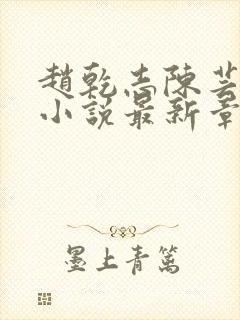 趙乾志陳芸
小說最新章
墨上青篤